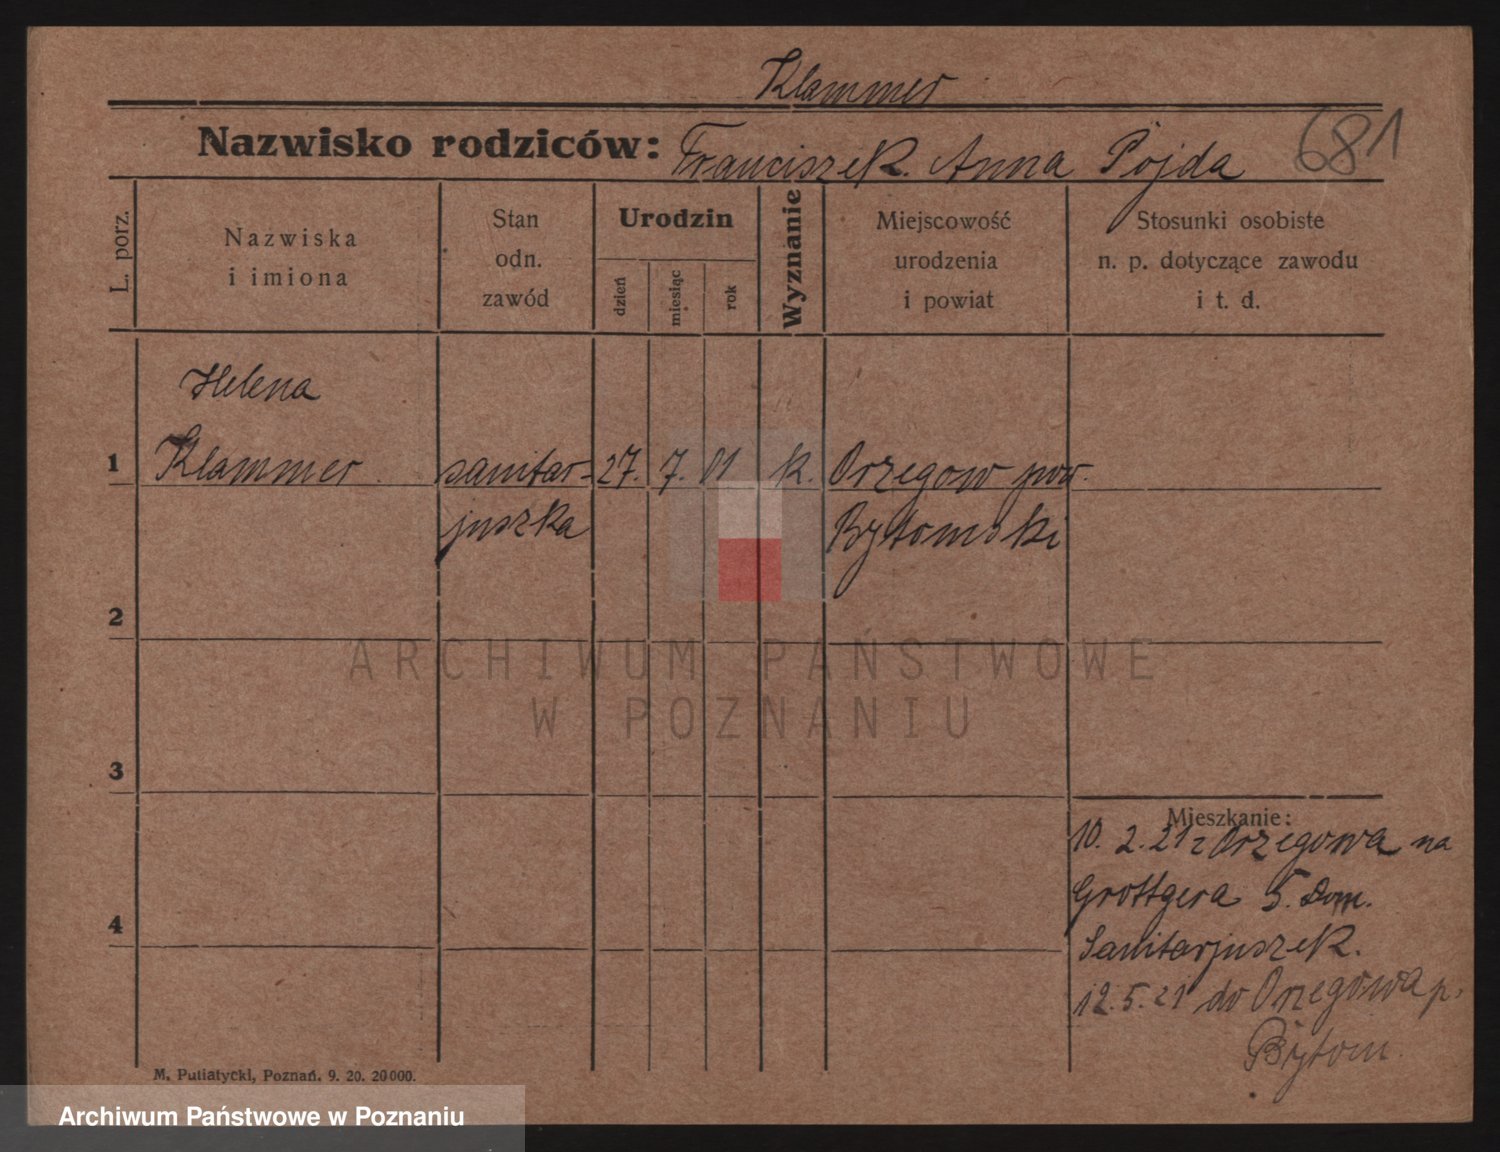 Klammer
Nazwisko rodziców: Franciszek. Anna Pojda
681
L. porz.
Nazwiska
i imiona
Stan
odn.
zawód
Urodzin
dzień
miesiąc
rok
Wyznanie
Miejscowość
urodzenia
i powiat
Stosunki osobiste
n. p. dotyczące zawodu
i t. d.
Helena
1 Klammer sanitar- 27. 7. 01 k. Orzegow pow.
juszka Bytomski
2
ARCHIWUM PAŃSTWOWE
W POZNANIU
3
Mieszkanie:
10. 2. 21 z Orzegowa na
Grottgera 5. Dom.
4
Sanitarjuszek.
12. 5. 21 do Orzegowa p.
Bytom.
M. Putiatycki, Poznań. 9. 20. 20000.
Archiwum Państwowe w Poznaniu